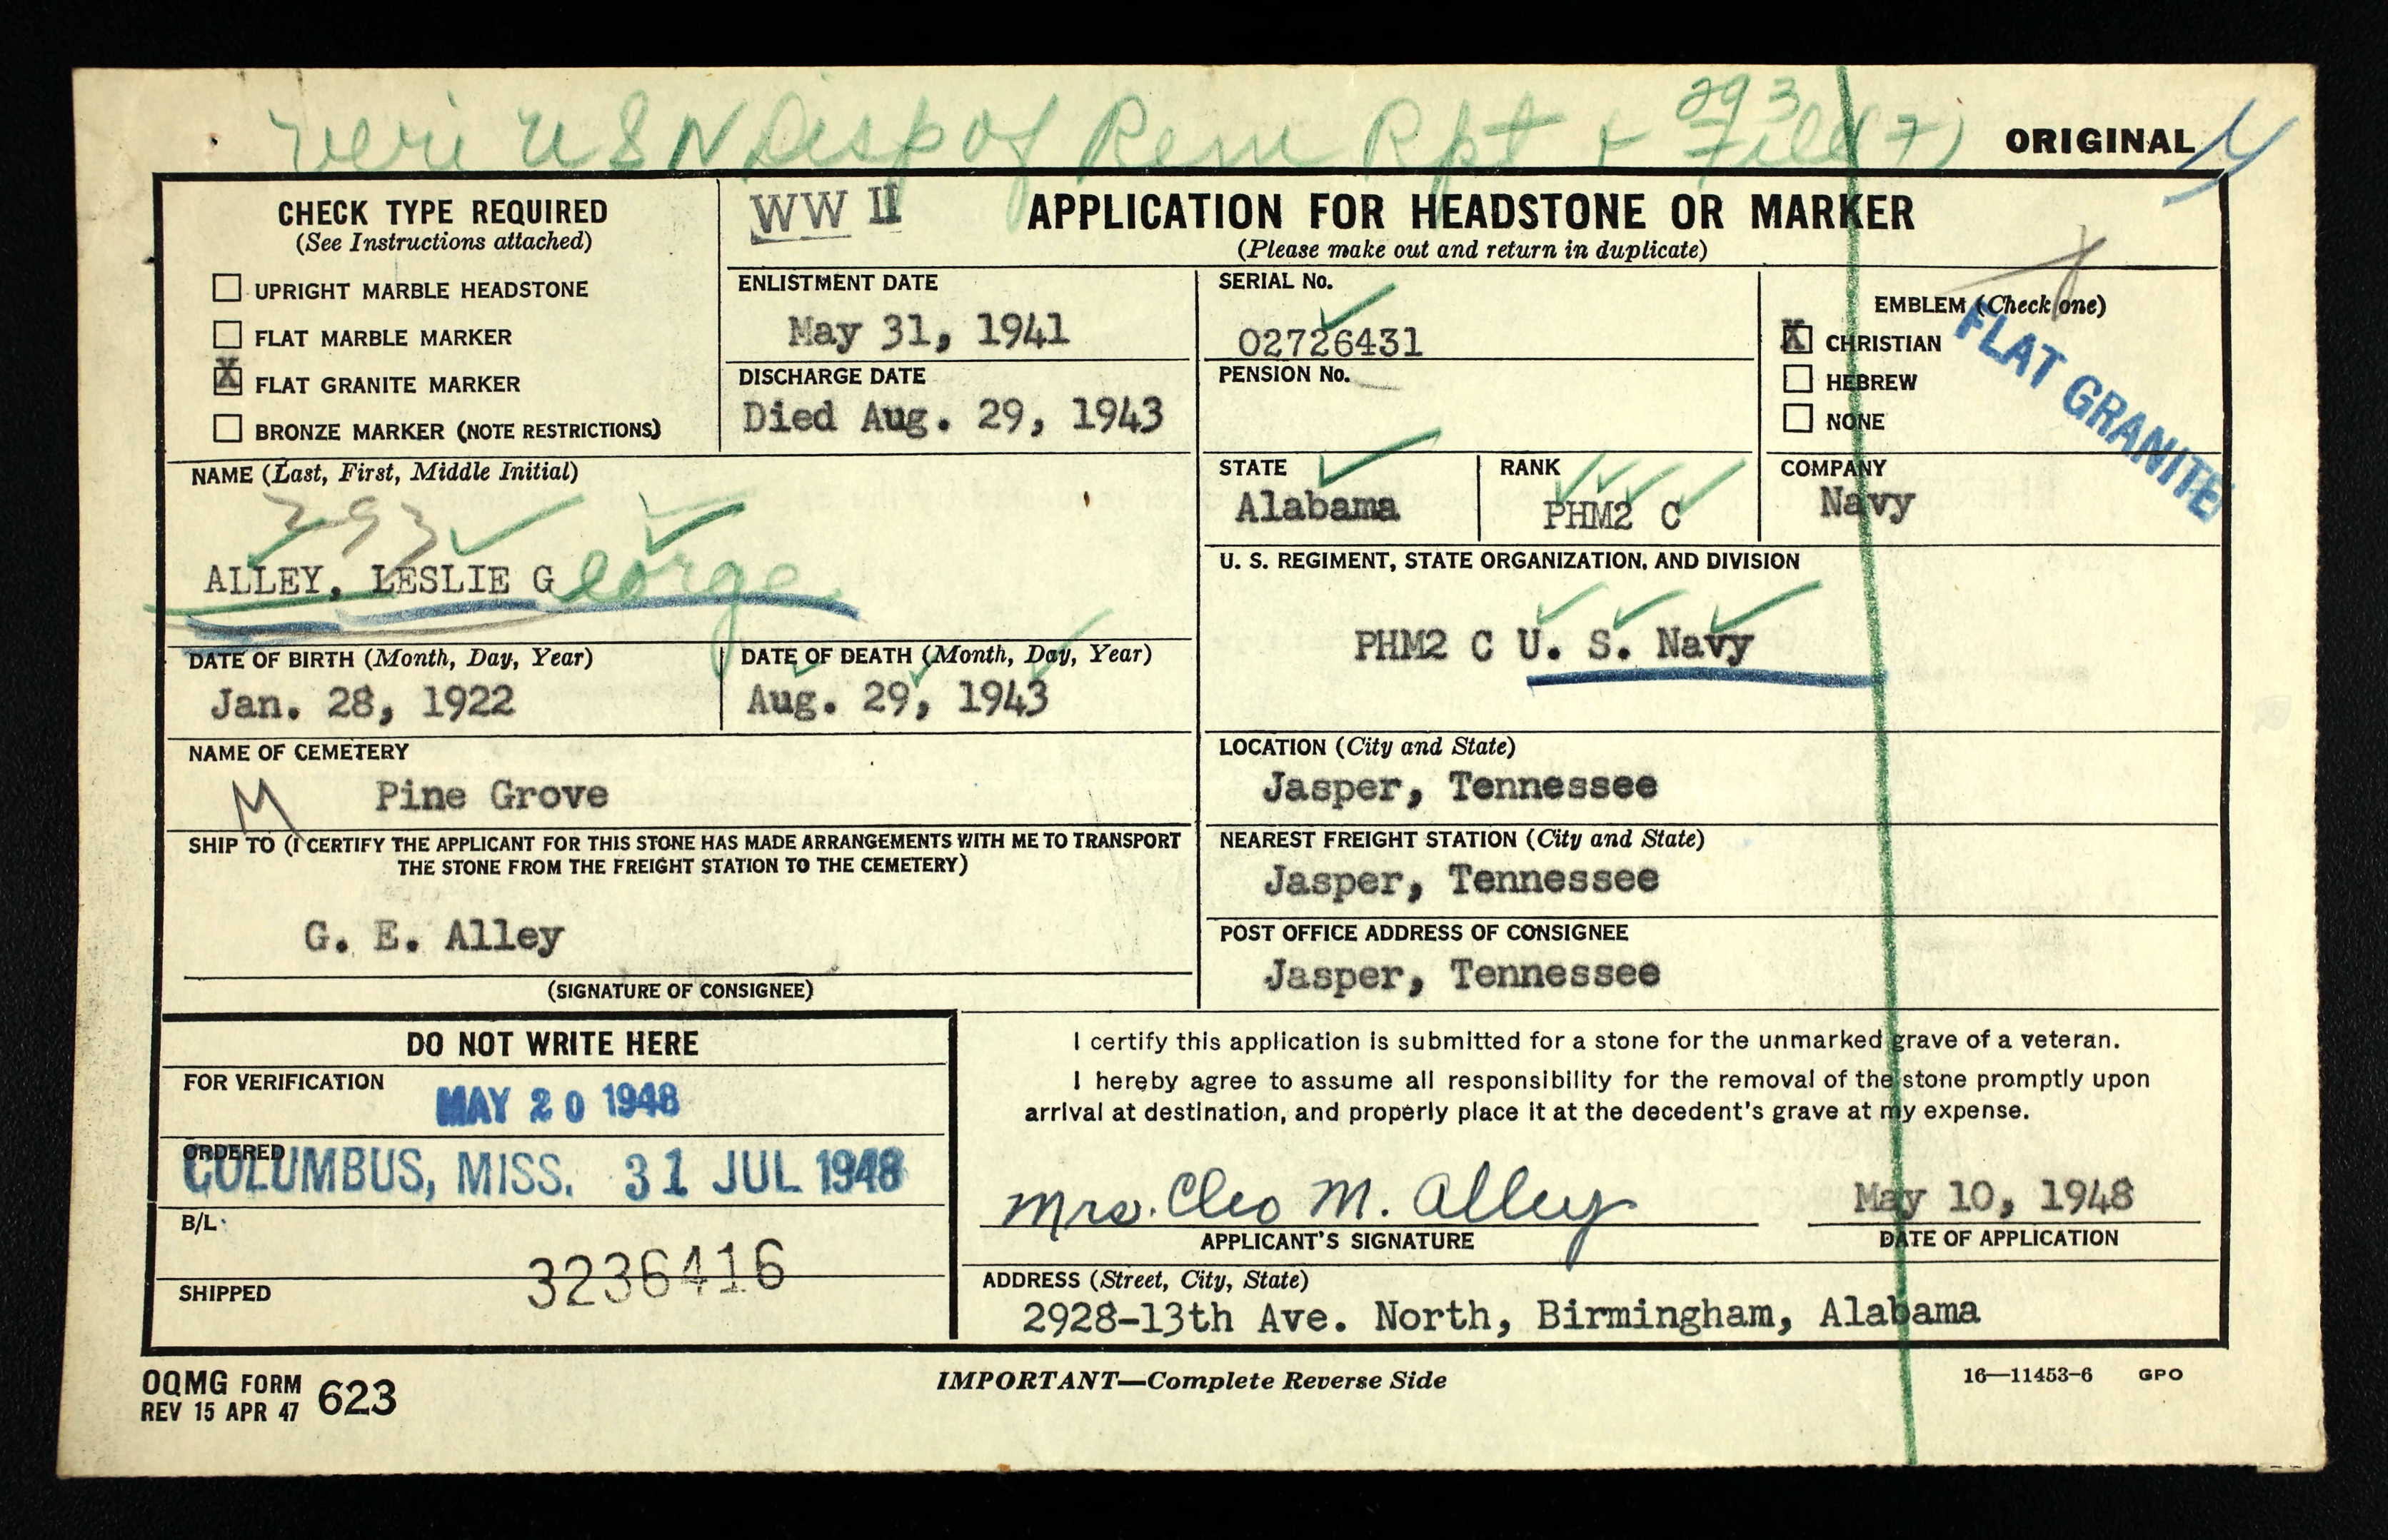 Veri USN Disp of Rem Rpt + File (7)
293
ORIGINAL
CHECK TYPE REQUIRED
(See Instructions attached)
UPRIGHT MARBLE HEADSTONE
FLAT MARBLE MARKER
X FLAT GRANITE MARKER
BRONZE MARKER (NOTE RESTRICTIONS)
WW II
APPLICATION FOR HEADSTONE OR MARKER
(Please make out and return in duplicate)
ENLISTMENT DATE
May 31, 1941
DISCHARGE DATE
Died Aug. 29, 1943
SERIAL No.
02726431
PENSION No.
EMBLEM (Check one)
X CHRISTIAN
HEBREW
NONE
FLAT GRANITE
NAME (Last, First, Middle Initial)
293
ALLEY, LESLIE George
STATE
Alabama
RANK
PHM2 C
COMPANY
Navy
U. S. REGIMENT, STATE ORGANIZATION, AND DIVISION
PHM2 C U. S. Navy
DATE OF BIRTH (Month, Day, Year)
Jan. 28, 1922
DATE OF DEATH (Month, Day, Year)
Aug. 29, 1943
NAME OF CEMETERY
M Pine Grove
LOCATION (City and State)
Jasper, Tennessee
SHIP TO (I CERTIFY THE APPLICANT FOR THIS STONE HAS MADE ARRANGEMENTS WITH ME TO TRANSPORT
THE STONE FROM THE FREIGHT STATION TO THE CEMETERY)
G. E. Alley
(SIGNATURE OF CONSIGNEE)
NEAREST FREIGHT STATION (City and State)
Jasper, Tennessee
POST OFFICE ADDRESS OF CONSIGNEE
Jasper, Tennessee
DO NOT WRITE HERE
FOR VERIFICATION
MAY 20 1948
ORDERED
COLUMBUS, MISS. 31 JUL 1948
B/L
3236416
SHIPPED
I certify this application is submitted for a stone for the unmarked grave of a veteran.
I hereby agree to assume all responsibility for the removal of the stone promptly upon
arrival at destination, and properly place it at the decedent's grave at my expense.
Mrs. Cleo M. Alley
APPLICANT'S SIGNATURE
May 10, 1948
DATE OF APPLICATION
ADDRESS (Street, City, State)
2928-13th Ave. North, Birmingham, Alabama
OQMG FORM 623
REV 15 APR 47
IMPORTANT—Complete Reverse Side
16—11453-6 GPO